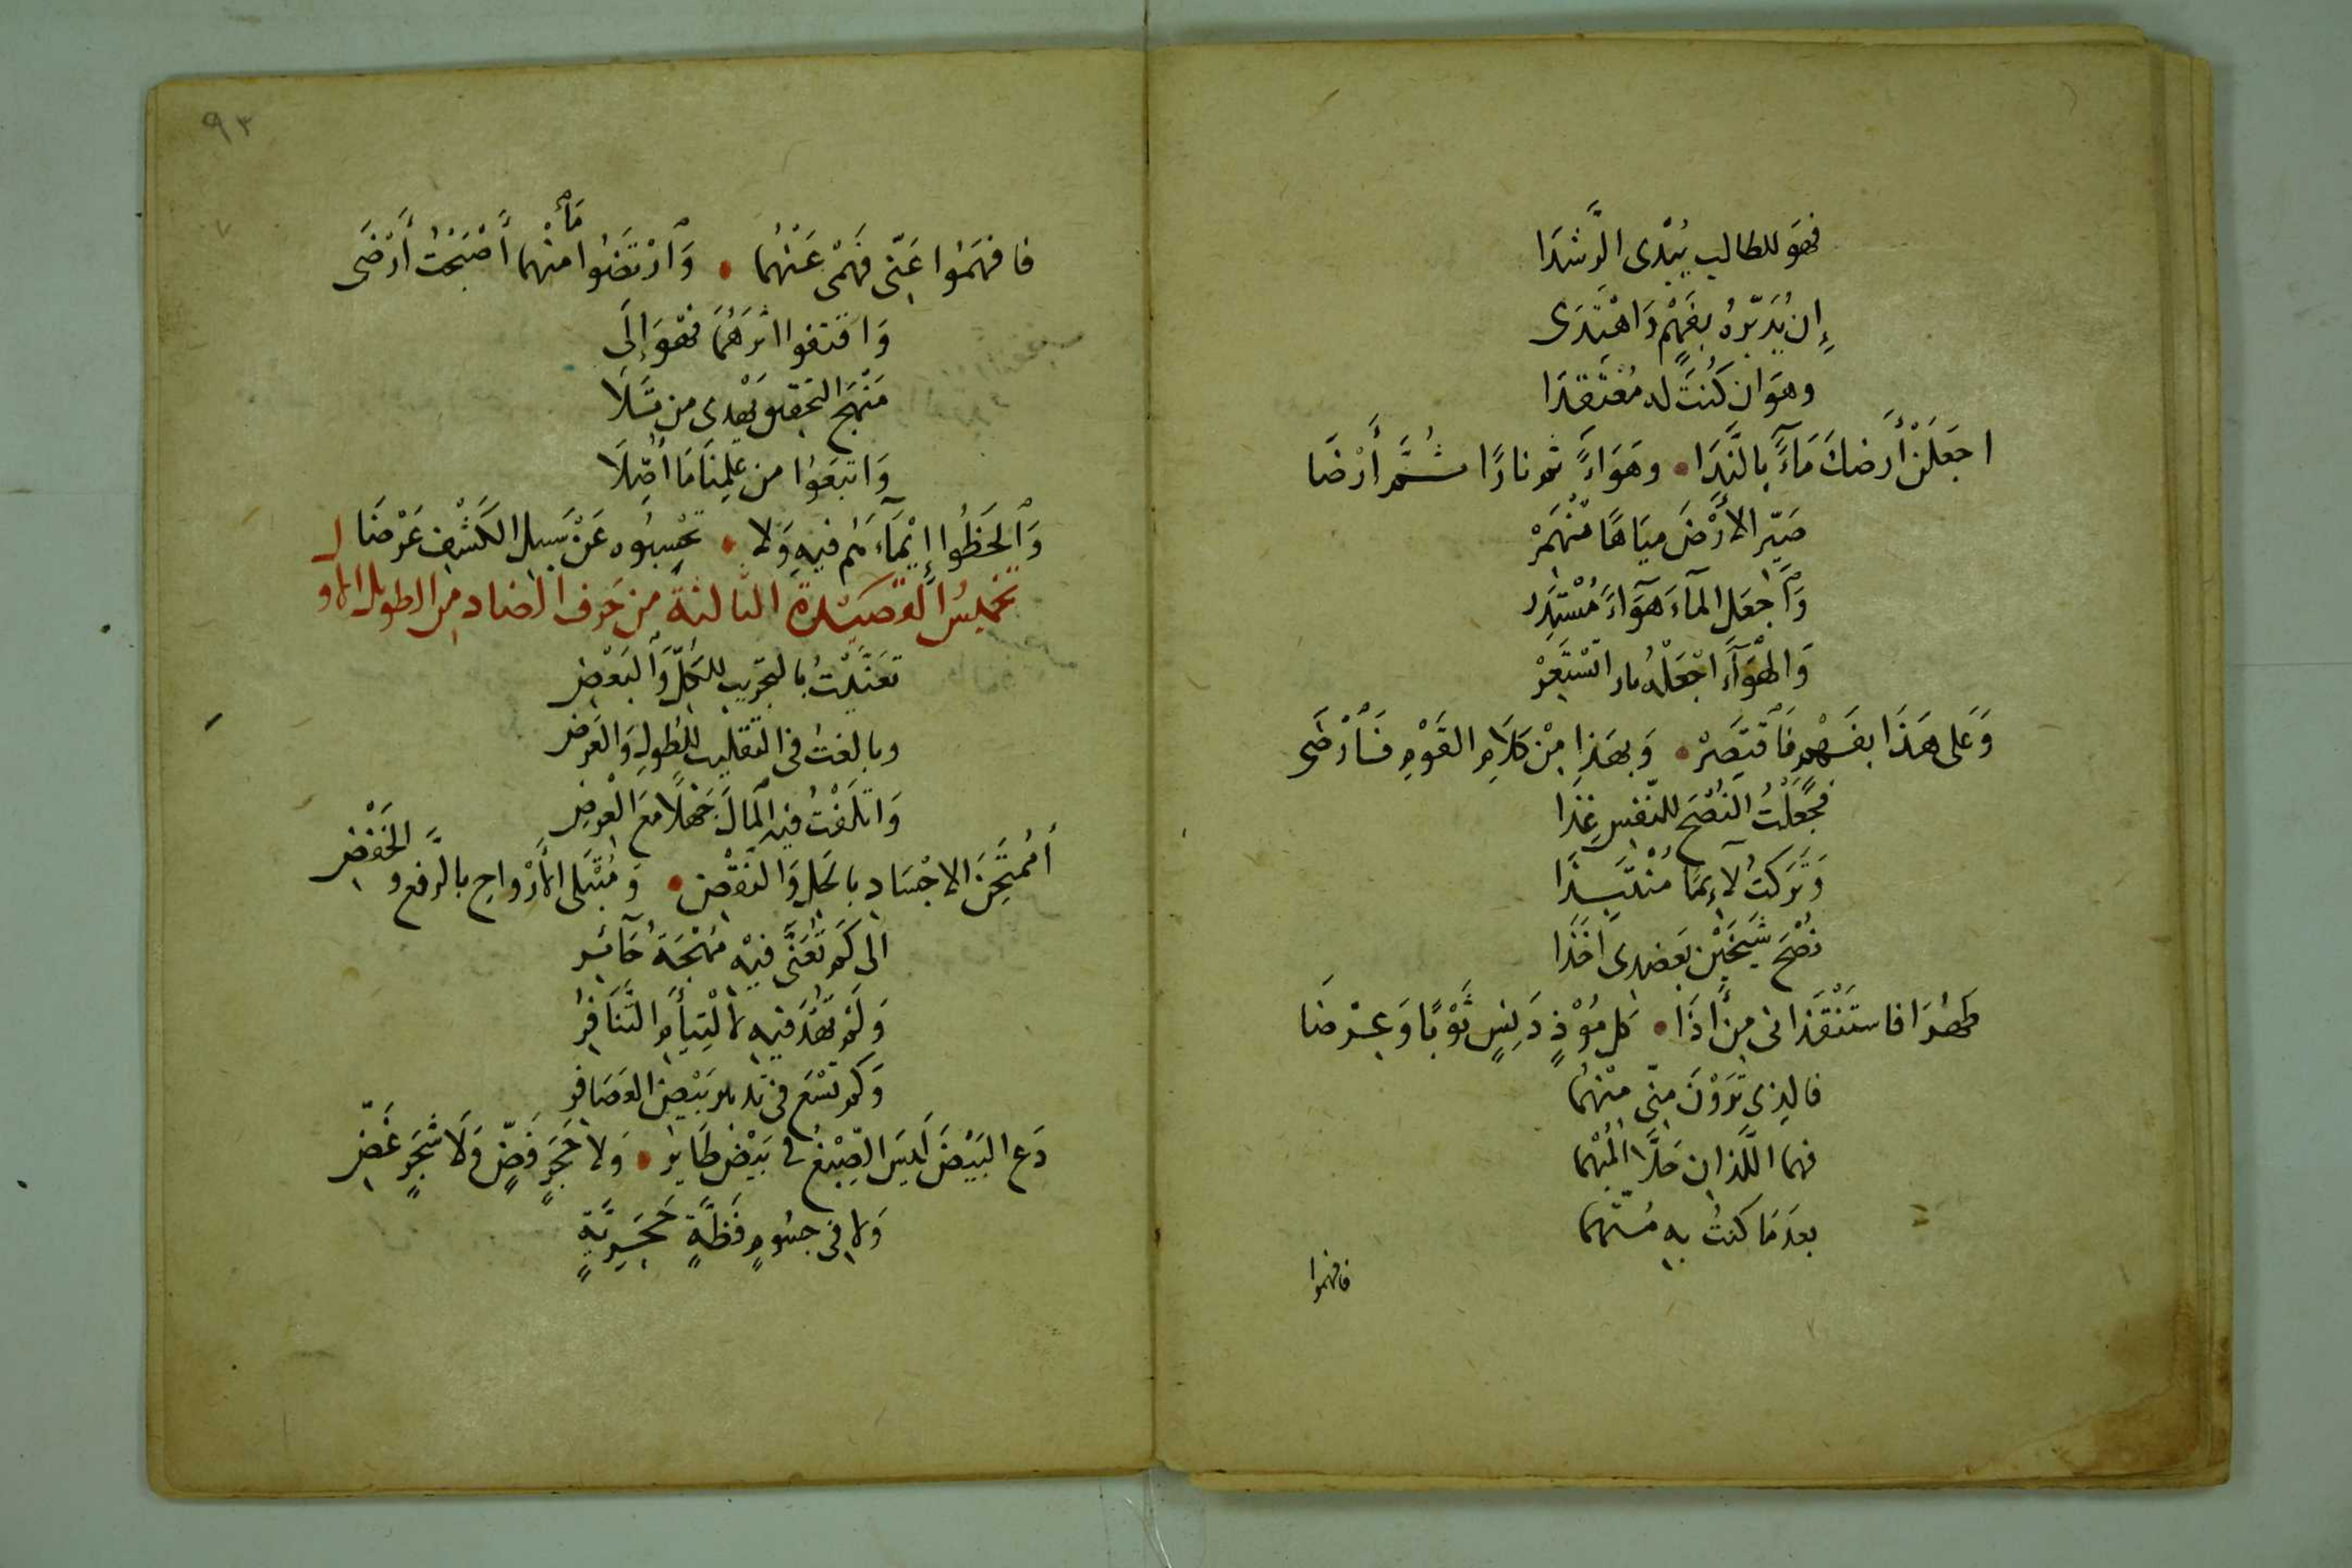 فهوَ للطالب يُبْدى الرَّشَدَا
إِن يُدَبّرهُ بفَهْمٍ وَاهْتَدَى
وهوَ ان كُنتَ له مُعْتَقدَا
اجعَلَنْ أَرضكَ مَآءً بالنَّدَا • وهَوَآءً ثم نارًا ثُمَّ أَرْضَا
صَيّر الأَرْضَ ميَاهًا تنْهَمْرْ
وَاجعَل المآءَ هَوَآءً مُسْتَمِر
وَالهْوَآءَ اجْعَلْهُ نارا تَسْتَعِرْ
وَعَلى هَذَا بفَهْمٍ فَاقتَصِرْ • وَبهَذا مِنْ كلَامِ القَوْمِ فَأَرْضَى
فجَعَلْتُ النُصْحَ للنَفسِ غِذَا
وَتَركتُ لآءِمًا مُنْتَبِذَا
نُصْحَ شَيْخَيْن بَعضدى اخَذَا
طَهُرَا فاستَنْقَذانى مِن أَذَا • كل مُوْذٍ دَنِسٍ ثَوْبًا وَعِرْضَا
فالذى تَرَوْنَ منّى مِنْهُمَا
فهما اللَّذان حَلَّا المُبْهمَا
بعدَمَا كنتُ به مُتّهمَا
فافهموا
٩٣
فافهَمُوا عَنّى فَهْمى عَنْهُمَا • وَارْتضَوُا منْهما مَا أَصْبَحْتُ أَرْضَى
وَاقتفوا اثرَهُمَا فهْوَ إلَى
مَنْهَج التحقيق يَهْدى من تَلَا
وَاتبَعوُا من عِلمِنَا مَا أُصِّلَا
وَالحَظُوا إيْمَآءَهُم فيهِ وَلا • تحْسِبُوه عَنْ سَبيل الكَشْفِ عَرْضَا
تخميسُ القصَيْدةِ الثالثة من حَرف الضاد من الطويل الأو ل
تعَنَّيْتُ بالتجريب للكلِّ وَالبَعْضِ
وبالغتُ فى التقليب للطُولِ وَالعَرضِ
وَاتلَفْتُ فيه المَالَ جَهْلًا مَعَ العِرضِ
أَمُمتَحِنَ الاجْسَادِ بالحَل وَالنَقْضِ • وَمُبْتَلى الأَرْواحِ بالرَّفعِ و الخَفْضِ
الى كَم تُعَنَّى فيْهِ مُهْجَةُ حَآئِرِ
وَلَمْ تهْدَ فيهِ لألْتِيأمِ التَّنَافُرِ
وَكم تَسْعَ فى تدبيرِ بَيْضِ العصَافرِ
دَع البَيْضَ لَيسَ الصِّبْغُ فى بَيْضِ طَائِرٍ • وَلا حَجَرٍ فَضٍّ وَلَا شجَرٍ غَضِّ
وَلا فى جسُومٍ فَظَّةٍ حَجَرِيَّةٍ